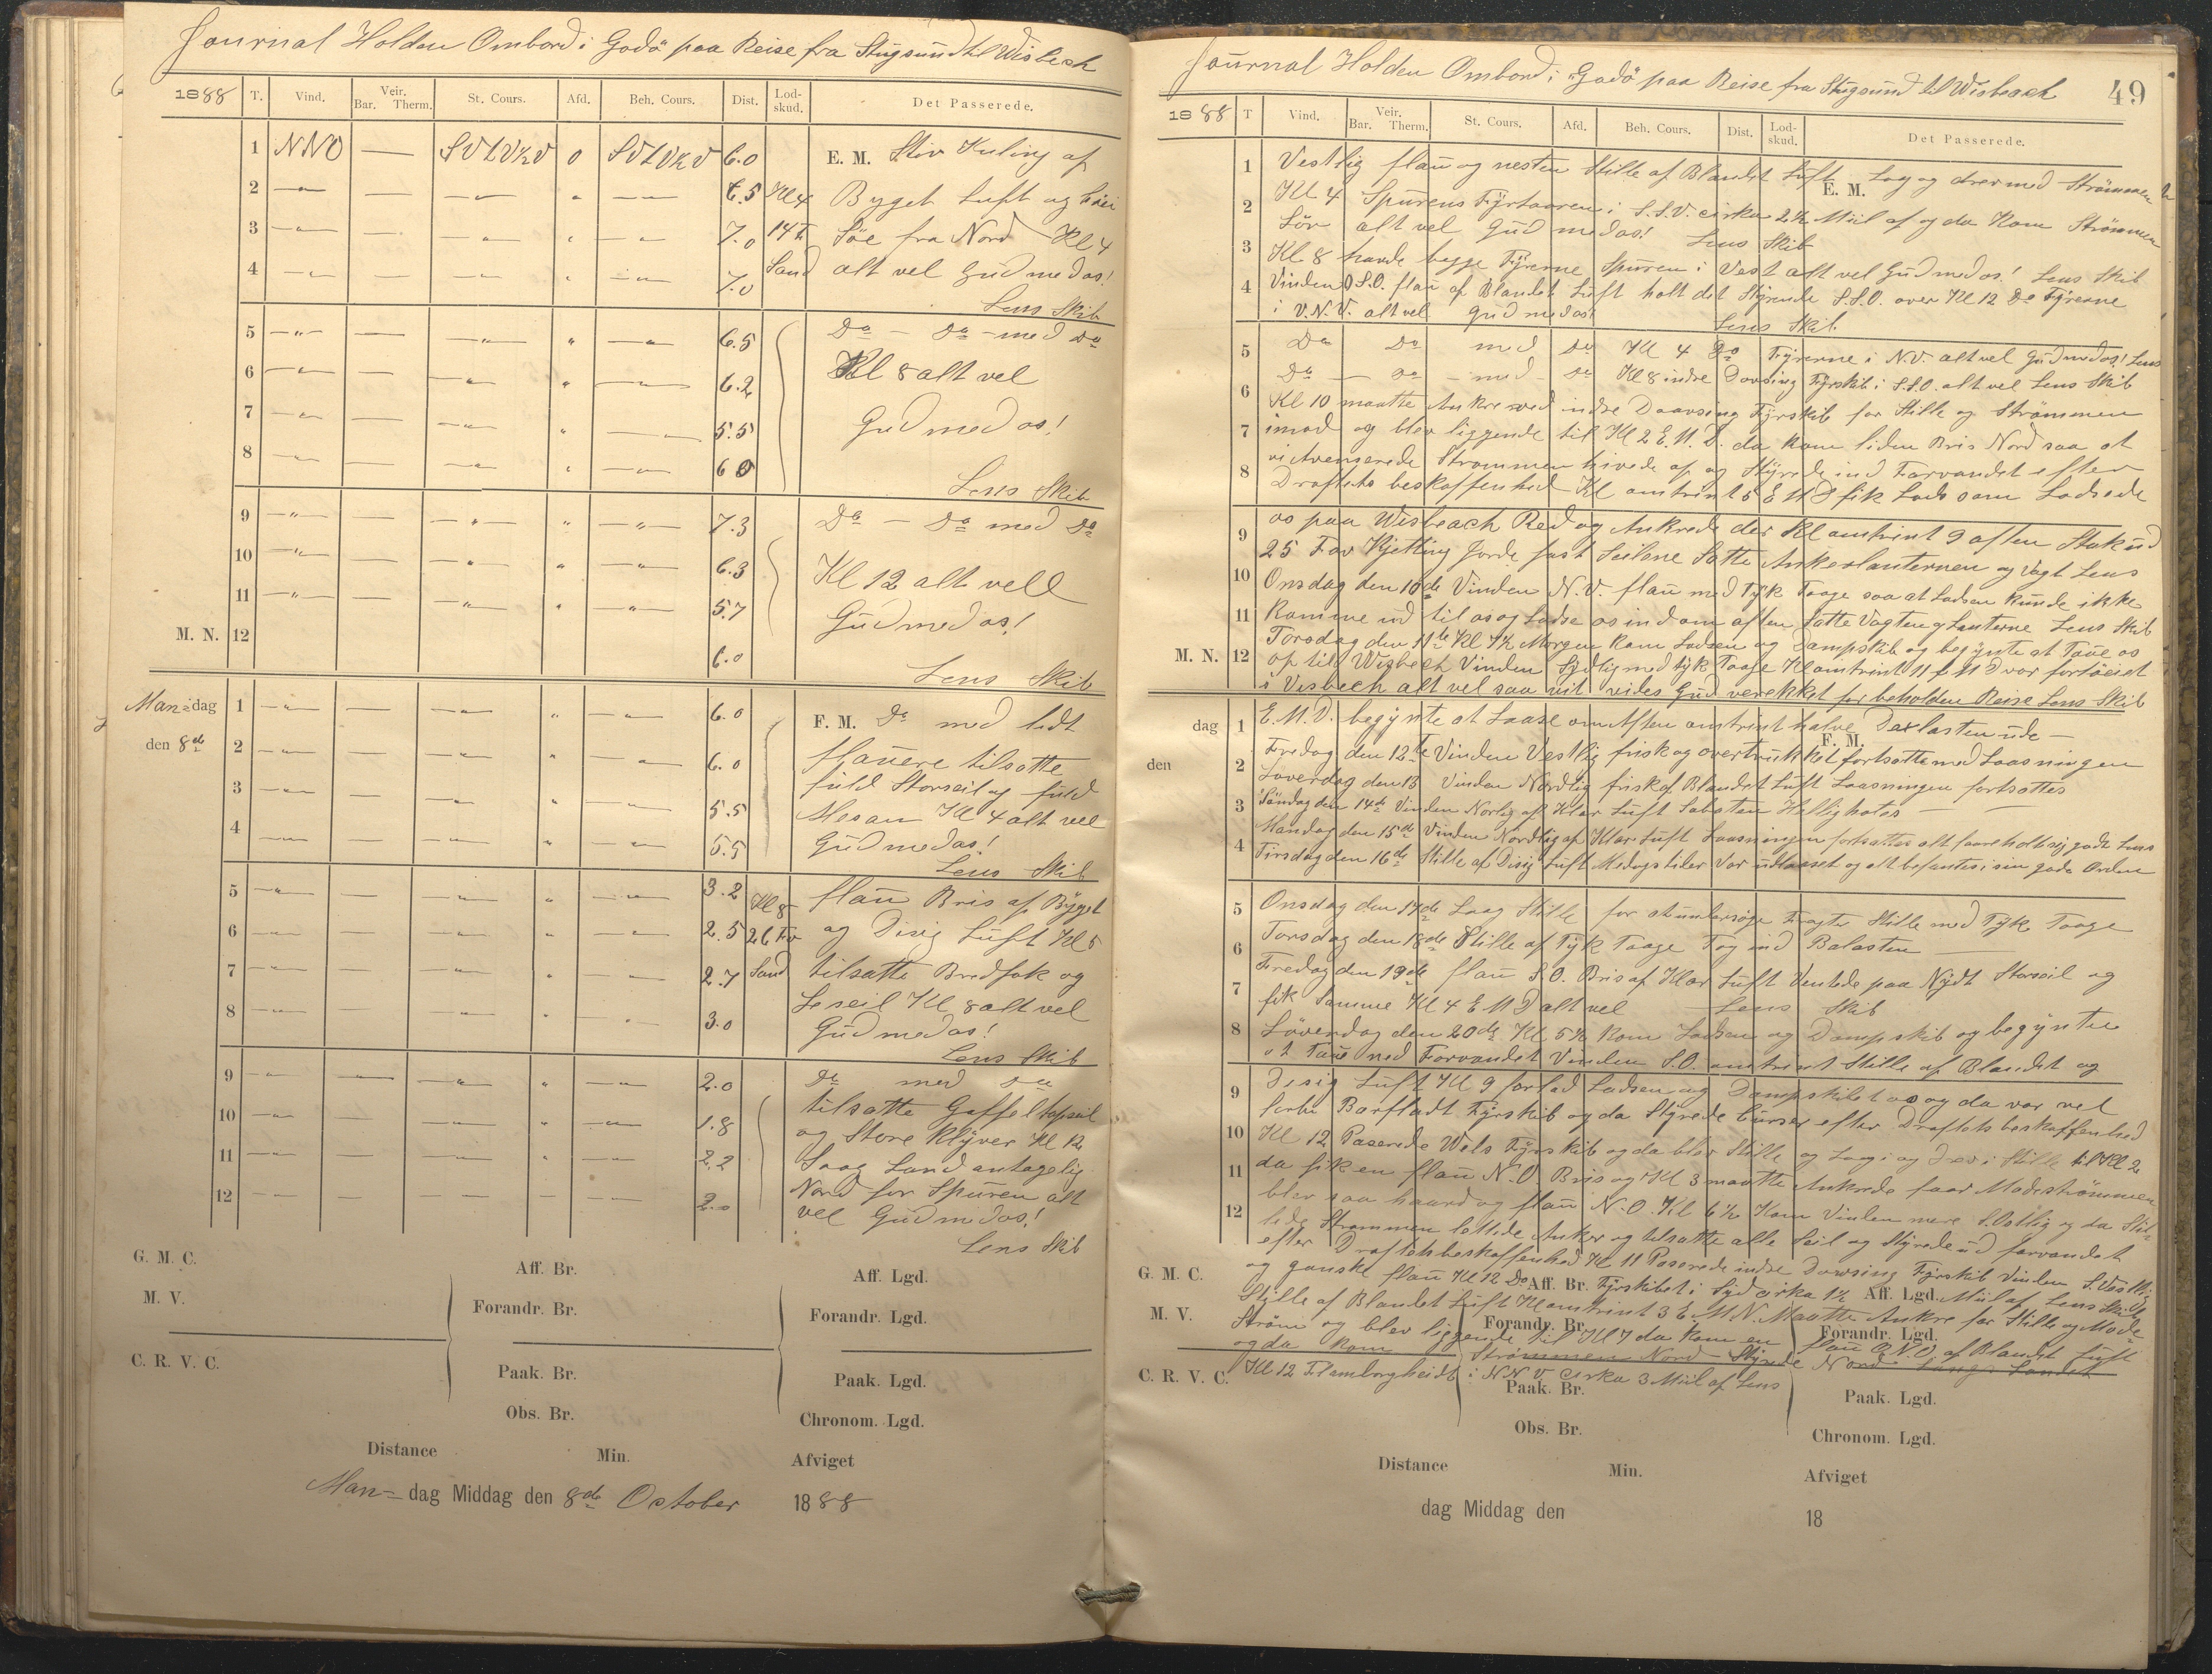 Journal Holden Ombord i Godö paa Reise fra Stugsund til Wisbech
1888 T. Vind. Veir. Bar. Therm. St. Cours. Afd. Beh. Cours. Dist. Lod-skud. Det Passerede.
1 NNO — SVLV½V 0 SVLV½V 6.0 E. M. Stiv Kuling af
2 6.5 Kl 4 Byget Luft og høi
3 7.0 14 Söe fra Nord Kl 4
4 7.0 Sand alt vel Gud med os!
Lens Skib
5 6.5 Do — Do — med Do
6 6.2 Kl 8 alt vel
7 5.5 Gud med os!
8 6.0
Lens Skib
9 7.3 Do — Do med Do
10 6.3 Kl 12 alt vell
11 5.7 Gud med os!
M. N. 12 6.0
Lens Skib
Man=dag 1 6.0 F. M. Do med lidt
den 8de 2 6.0 flauere tilsatte
fuld Storseil og fuld
3 5.5 Mesan Kl 4 alt vel
4 5.5 Gud med os!
Lens Skib
5 3.2 Kl 8 flau Bris af Byget
6 2.5 26 Fv og Disig Luft Kl 5
7 2.7 Sand tilsatte Bredfok og
Leseil Kl 8 alt vel
8 3.0 Gud med os!
Lens Skib
9 2.0 Do med Do
tilsatte Gaffeltopseil
10 1.8 og Store Klyver Kl 12
11 2.2 Saag Land antagelig
12 2.0 Nord for Spuren alt
vel Gud med os!
Lens Skib
G. M. C. Aff. Br. Aff. Lgd.
M. V. Forandr. Br. Forandr. Lgd.
C. R. V. C. Paak. Br. Paak. Lgd.
Obs. Br. Chronom. Lgd.
Distance Min. Afviget
Man= dag Middag den 8de October 1888
Journal Holden Ombord i Godö paa Reise fra Stugsund til Wisbeach 49
1888 T Vind. Veir. Bar. Therm. St. Cours. Afd. Beh. Cours. Dist. Lod-skud. Det Passerede.
E. M.
1 Vestlig flau og nesten Stille af Blandet Luft Lag og drev med Strömmen
2 Kl 4 Spurens Fyrtaaren i S.S.V. cirka 2½ Miil af og da Kom Strömmen
Sör alt vel Gud med os! Lens Skib
3 Kl 8 havde begge Fyrerne Spuren i Vest alt vel Gud med os! Lens Skib
4 Vinden S.O. flau af Blandet Luft holt det Styrende S.S.O. over Kl 12 Do Fyrerne
i V.N.V. alt vel Gud med os! Lens Skib
5 Do Do med Do Kl 4 Do Fyrerne i N.V. alt vel Gud med os! Lens
Do — Do — med Do Kl 8 indre Dovsing Fyrskib i S.S.O. alt vel Lens Skib
6 Kl 10 maatte Ankre ved indre Daavsing Fyrskib for Stille og Strömmen
7 imod og blev liggende til Kl 2 E.M.D. da kom liden Bris Nord saa at
vi Avenserede Strömmen hivede af og Styrede ind Farvandet efter
8 Draftets beskaffenhed Kl omtrint 5 E M D fik Lods som Lodsede
9 os paa Wisbeach Red og Ankrede der Kl omtrint 9 aften Stak ud
25 Fav Kjetting Gjorde fast Seilene Satte Ankerlanternen og Vagt Lens
10 Onsdag den 10de Vinden N.V. flau med Tyk Taage saa at Lodsen kunde ikke
11 Komme ud til os og Lodse os ind om aften Satte Vagten og Lanterne Lens Skib
Torsdag den 11te Kl 7½ Morgen kom Lodsen og Dampskib og begynte at Taue os
M. N. 12 op til Wisbech Vinden Sydlig med tyk Taage Kl omtrint 11 f M D var fortöiet
i Visbech alt vel saa vit vides Gud verekket for beholden Reise Lens Skib
F. M.
dag 1 E.M.D. begynte at Laase om Aften omtrint halve Dexlasten ude —
den 2 Fredag den 12te Vinden Vestlig frisk og overtrukket fortsatte med Laasningen
Löverdag den 13 Vinden Nordlig frisk af Blandet Luft Laasningen fortsattes
3 Söndag den 14de Vinden Norlig af Klar Luft Sabsten Helligholdes
Mandag den 15de Vinden Nordlig af Klar Luft Laasningen fortsattes alt faareholt sig godt Lens
4 Tirsdag den 16de Stille af Disig Luft Medagstider var udlaaset og alt befantes i sin gode Orden
5 Onsdag den 17de Laag Stille for at undersöge Fragter Stille med Tyk Taage
6 Torsdag den 18de Stille af Tyk Taage Tog ind Balasten
7 Fredag den 19de flau S.O. Bris af Klar Luft Ventede paa Nydt Storseil og
fik Samme Kl 4 E M D alt vel Lens Skib
8 Löverdag den 20de Kl 5½ Kom Lodsen og Dampskib og begynte
at Taue ned Farvandet Vinden S.O. omtrint Stille af Blandet og
9 Disig Luft Kl 9 forlod Lodsen og Dampskibet os og da var vel
forbi Barfladt Fyrskib og da Styrede Curser efter Draftets beskaffenhed
10 Kl 12 Paserede Wels Fyrskib og da blev Stille og Lag i og Drev i Stille til Kl 2
11 da fik en flau N.O. Bris og Kl 3 maatte Ankrede faar Modeströmmen
blev saa haard og flau N.O. Kl 6½ Kom Vinden mere S.Ostlig og da Stil-
12 lede Strömmen lettede Anker og tilsatte alle Seil og Styrede ud farvandet
efter Draftets beskaffenhed Kl 11 Paserede indre Dowsing Fyrskib Vinden S. Vestlig
og ganske flau Kl 12 Do Fyrskibet i Syd cirka 1½ Miil af Lens Skib
G. M. C. Aff. Br. Aff. Lgd.
Stille af Blandet Luft Kl omtrint 3 E. M.N. Maatte Ankre for Stille og Mode
M. V. Forandr. Br. Forandr. Lgd.
Ström og blev liggende til Kl 7 da kom en flau O.N.O af Blandet Luft
og da kom Strömmen Nord Styrede Nord langs Landet
C. R. V. C. Kl 12 Flemborgheidt i NNV Cirka 3 Miil af Lens
Paak. Br. Paak. Lgd.
Obs. Br. Chronom. Lgd.
Distance Min. Afviget
dag Middag den 18